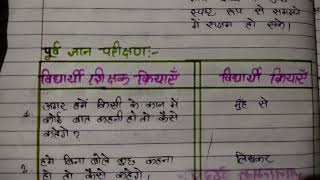 स्पष्ट रूप से समझने
में सक्षम हो सके।
पूर्व ज्ञान परीक्षण:-
विद्यार्थी शिक्षक क्रियाएँ विद्यार्थी क्रियाएँ
1. अगर हमें किसी के कान में मुँह से
कोई बात कहनी हो तो कैसे
कहेंगे?
2. हमें बिना बोले कुछ कहना लिखकर
हो तो कैसे कहेंगे।